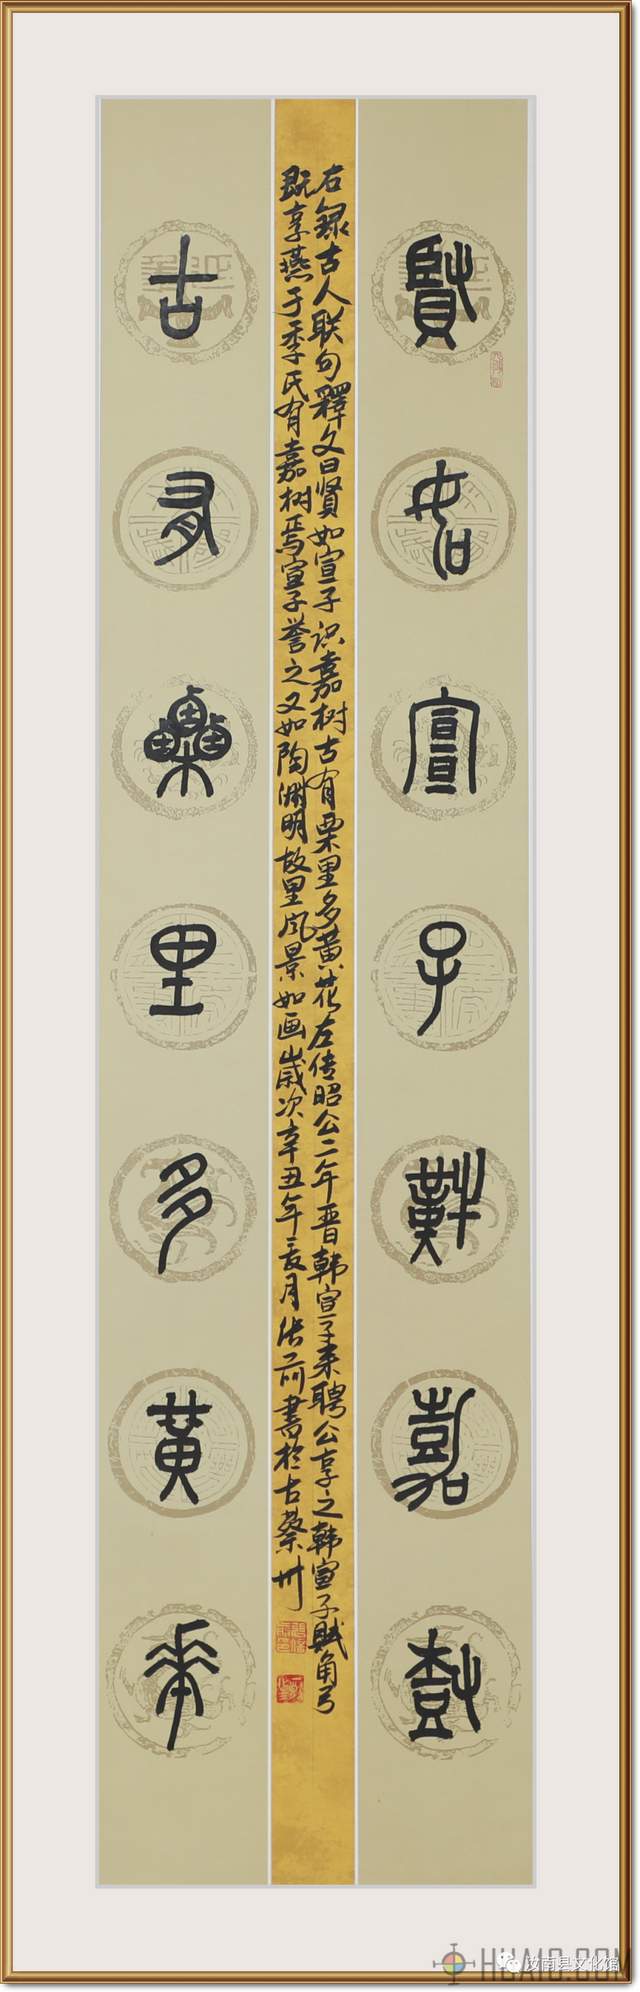 賢如宣子嘉樹
右録古人联句釋文曰贤如宣子识嘉树古有栗里多黄花左传昭公二年晋韩宣子来聘公享之韩宣子赋角弓
既享燕于季氏有嘉树焉宣子誉之又如陶渊明故里风景如画歲次辛丑年夏月书於古蔡州
古有栗里多黄華
汝南县文化馆